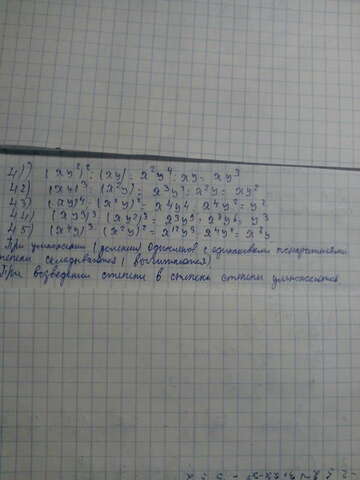 41) (xy²)² : (xy) = x²y⁴ : xy = xy³
42) (xy)³ : (x²y) = x³y³ : x²y = xy²
43) (xy)⁴ : (x²y)² = x⁴y⁴ : x⁴y² = y²
44) : (xy²)³ = : x³y⁶ = y³
45) (x⁴y)³ : (x²y)² = x¹²y³ : x⁴y² = x⁸y
При умножении (делении) одночленов с одинаковыми
степени складываются (вычитаются)
При возведении степени в степень степени умножаются